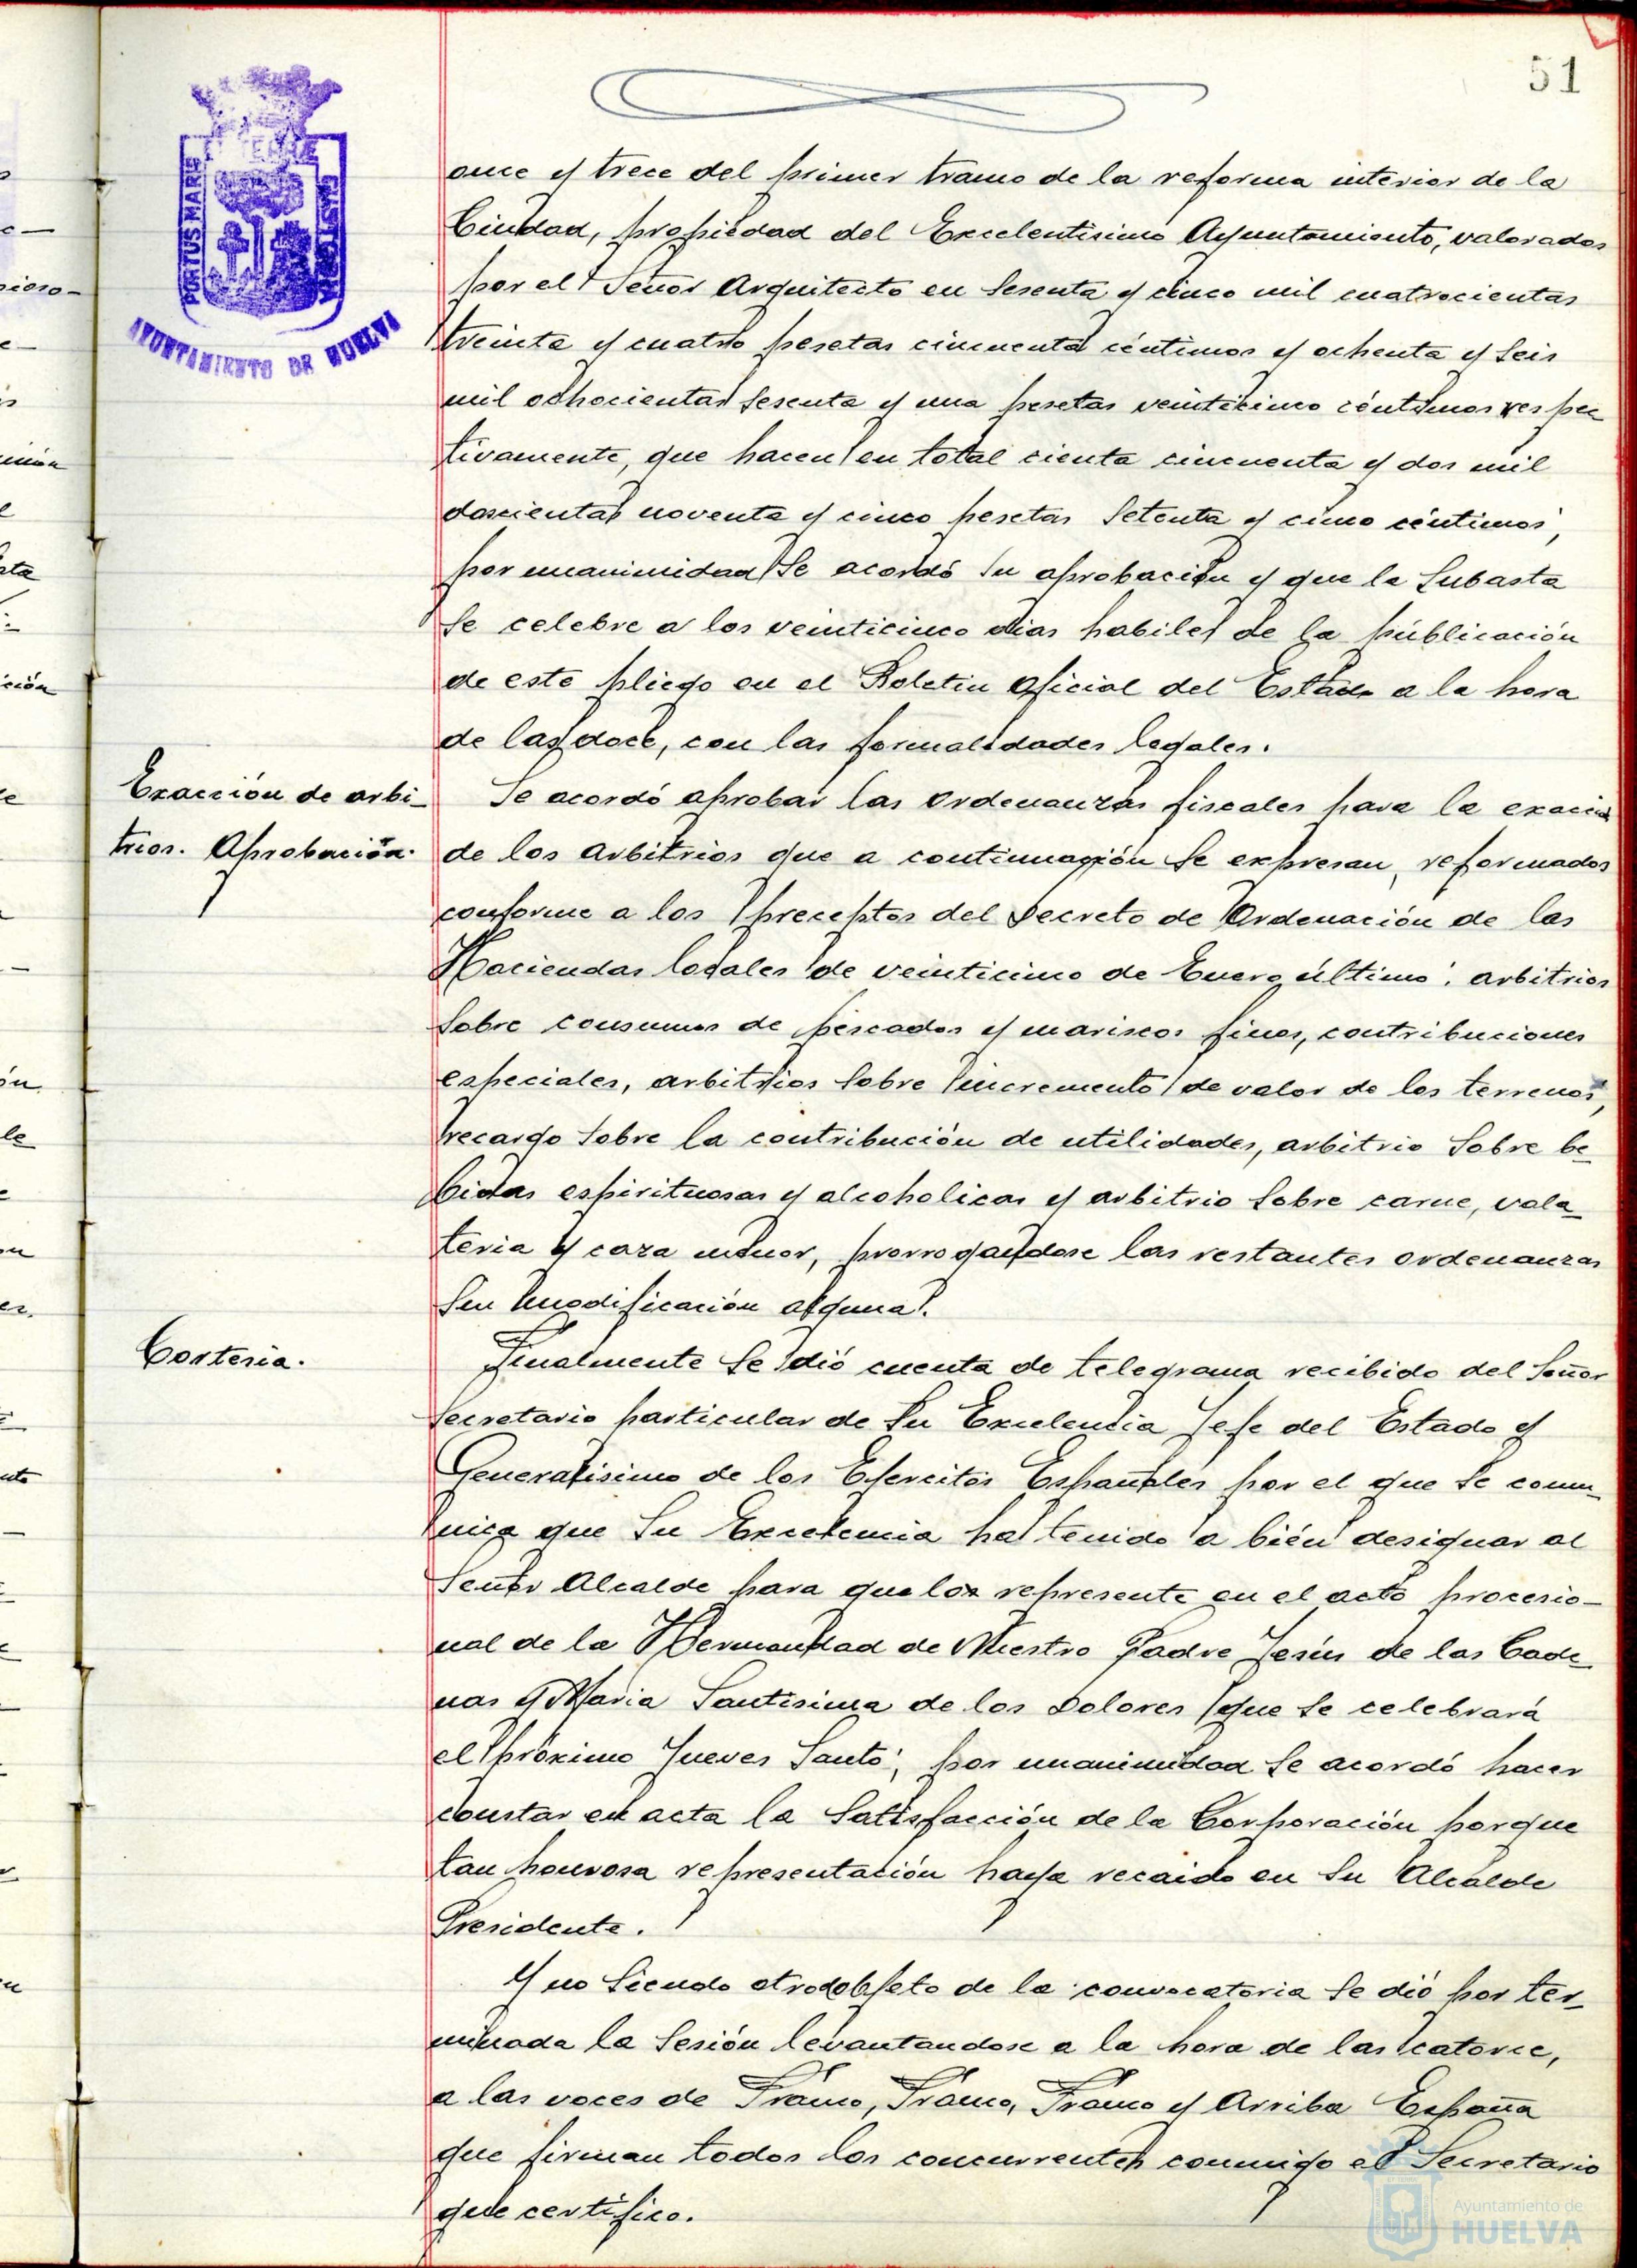 51
PORTUS MARIS
ET TERRAE
CUSTODIA
AYUNTAMIENTO DE HUELVA
once y trece del primer tramo de la reforma interior de la
Ciudad, propiedad del Excelentisimo Ayuntamiento, valorados
por el Señor Arquitecto en sesenta y cinco mil cuatrocientas
treinta y cuatro pesetas cincuenta céntimos y ochenta y seis
mil ochocientas sesenta y una pesetas veinticinco céntimos respec
tivamente, que hacen en total cienta cincuenta y dos mil
doscientas noventa y cinco pesetas setenta y cinco céntimos,
por unanimidad se acordó su aprobación y que la subasta
se celebre a los veinticinco dias habiles de la públicación
de este pliego en el Boletin Oficial del Estado a la hora
de las doce, con las formalidades legales.
Exacción de arbi-
trios. Aprobación.
Se acordó aprobar las ordenanzas fiscales para la exacción
de los arbitrios que a continuación se expresan, reformados
conforme a los preceptos del Decreto de Ordenación de las
Haciendas locales de veinticinco de Enero último: arbitrios
sobre consumos de pescados y mariscos finos, contribuciones
especiales, arbitrios sobre incremento de valor de los terrenos,
recargo sobre la contribución de utilidades, arbitrio sobre be-
bidas espirituosas y alcoholicas y arbitrio sobre carne, vola-
teria y caza menor, prorrogandose las restantes ordenanzas
sin modificación alguna.
Cortesia.
Finalmente se dió cuenta de telegrama recibido del Señor
Secretario particular de Su Excelencia Jefe del Estado y
Generalisimo de los Ejercitos Españoles por el que se comu-
nica que Su Excelencia ha tenido a bién designar al
Señor Alcalde para que lo represente en el acto procesio-
nal de la Hermandad de Nuestro Padre Jesús de las Cade-
nas y Maria Santisima de los Dolores que se celebrará
el próximo Jueves Santo; por unanimidad se acordó hacer
constar en acta la satisfacción de la Corporación porque
tan honrosa representación haya recaido en su Alcalde
Presidente.
Y no siendo otro objeto de la convocatoria se dió por ter-
minada la sesión levantandose a la hora de las catorce,
a las voces de Franco, Franco, Franco y Arriba España
que firman todos los concurrentes conmigo el Secretario
que certifico.
Ayuntamiento de
HUELVA